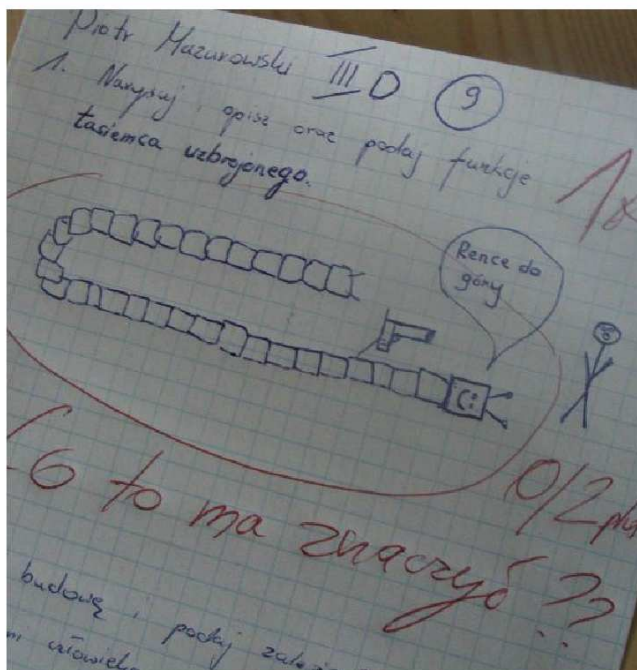 Piotr Mazurowski III D 9
1. Narysuj, opisz oraz podaj funkcje
tasiemca uzbrojonego.
1
Rence do
góry
0/2
to ma znaczyć ??
budowę i podaj